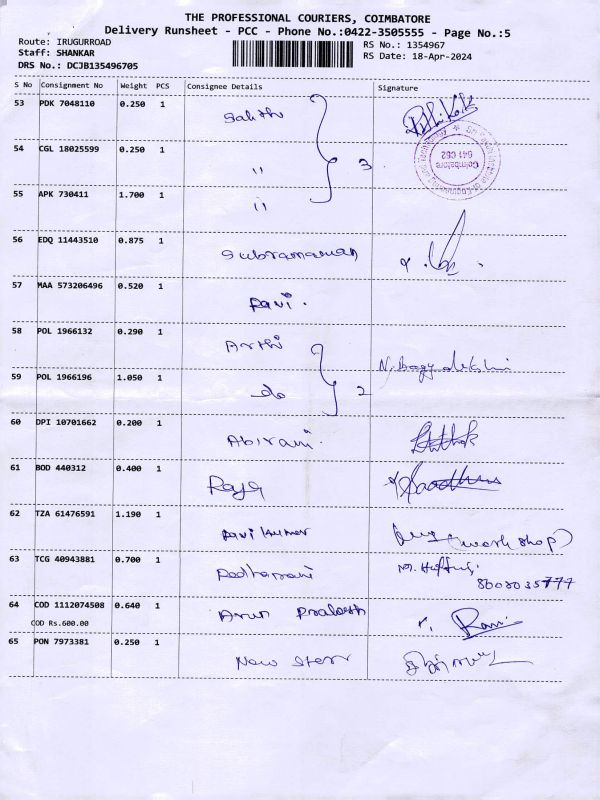 THE PROFESSIONAL COURIERS, COIMBATORE
Delivery Runsheet - PCC - Phone No.:0422-3505555 - Page No.:5
Route: IRUGURROAD RS No.: 1354967
Staff: SHANKAR RS Date: 18-Apr-2024
DRS No.: DCJB135496705
S No Consignment No Weight PCS Consignee Details Signature
53 PDK 7048110 0.250 1 Sakthi
54 CGL 18025599 0.250 1 " 3
Coimbatore
641 062
55 APK 730411 1.700 1 "
56 EDQ 11443510 0.875 1 Subramanian
57 MAA 573206496 0.520 1 Ravi.
58 POL 1966132 0.290 1 Arthi
59 POL 1966196 1.050 1 do 2
60 DPI 10701662 0.200 1 Abirami.
61 BOD 440312 0.400 1 Raja
62 TZA 61476591 1.190 1 Ravi kumar (work shop)
63 TCG 40943881 0.700 1
64 COD 1112074508 0.640 1 Arun Prakash Ravi
COD Rs.600.00
65 PON 7973381 0.250 1 New